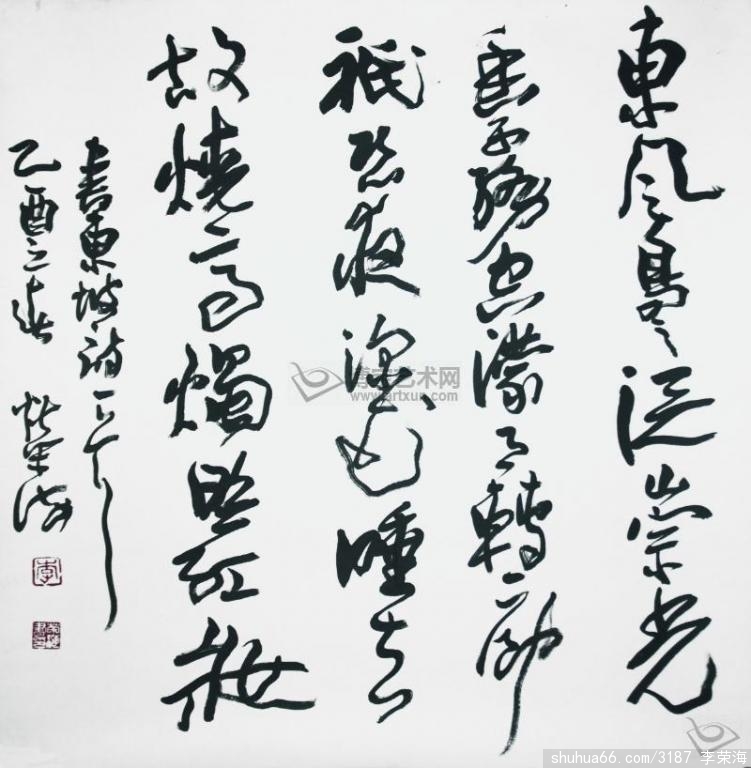 東風裊裊泛崇光
香霧空濛月轉廊
祇恐夜深花睡去
故燒高燭照紅妝
書東坡詩一首
乙酉之春 榮海
李
博宝艺术网
www.artxun.com
shuhua66.com/3187 李荣海